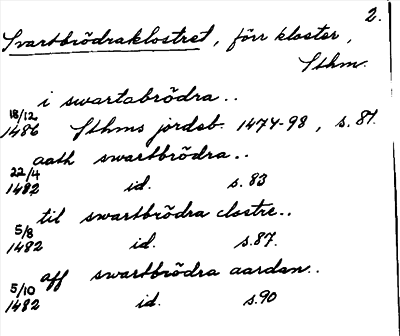 2.
Svartbrödraklostret, förr kloster,
Sthm.
i swartabrödra..
18/12
1486 Sthms jordeb. 1474-98, s. 81.
aath swartbrödra..
22/4
1482 id. s. 83
til swartbrödra clostre..
5/8
1482 id. s. 87.
aff swartbrödra aardan..
5/10
1482 id. s. 90